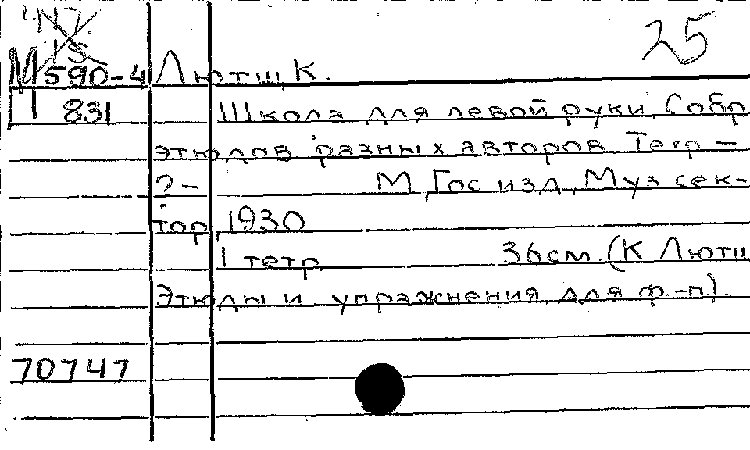 25
М 590-4 Лютш, К.
831 Школа для левой руки. Собр
этюдов разных авторов. Тетр-
2- М, Гос изд, Муз сек-
тор, 1930
1 тетр. 36см. (К Лютш
Этюды и упражнения для ф-п)
70747